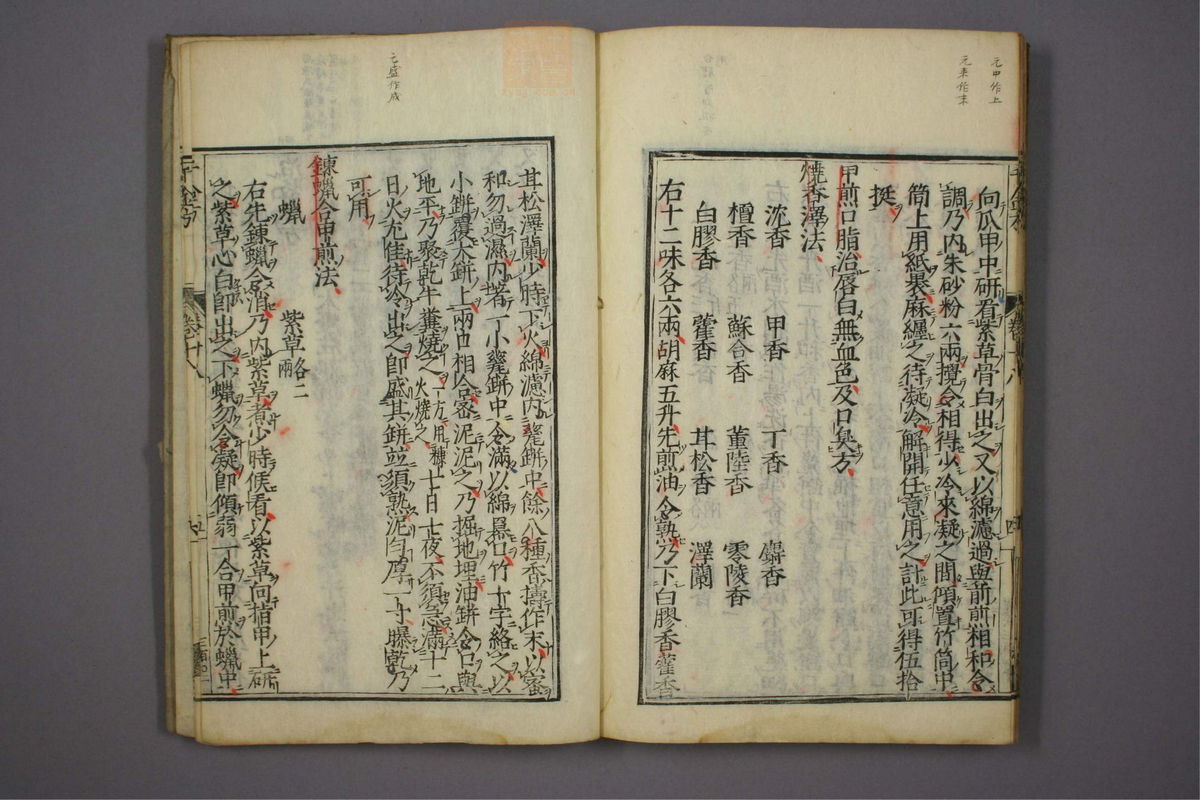 元中作上
元来作末
向爪甲中研看紫草骨白出之又以綿濾過與前煎相和令
調乃内朱砂粉六兩攪令相得少冷來凝之間傾置竹筒中
筒上用紙裹麻纏之待凝冷解開任意用之計此可得伍拾
挺
甲煎口脂治唇白無血色及口臭方
燒香澤法
沈香 甲香 丁香 麝香
檀香 蘇合香 薰陸香 零陵香
白膠香 藿香 耳松香 澤蘭
右十二味各六兩胡麻五升先煎油令熟乃下白膠香藿香
四
元盛作成
耳松澤蘭少時下火綿濾内甆缾中餘八種香擣作末以蜜
和勿過濕内著一小甆缾中令滿以綿羃口竹十字絡之以
小缾覆大缾上兩口相合密泥泥之乃掘地埋油缾令口與
地平乃聚乾牛糞燒之七日七夜不須急滿十二
一方用糠火燒之
日火尤佳待冷出之即盛其缾並須熟泥勻厚一寸曝乾乃
可用
鍊蠟合甲煎法
蠟 紫草各二兩
右先鍊蠟令消乃内紫草煮少時候看以紫草向指甲上研
之紫草心白即出之下蠟勿令凝即傾弱一合甲煎於蠟中
五